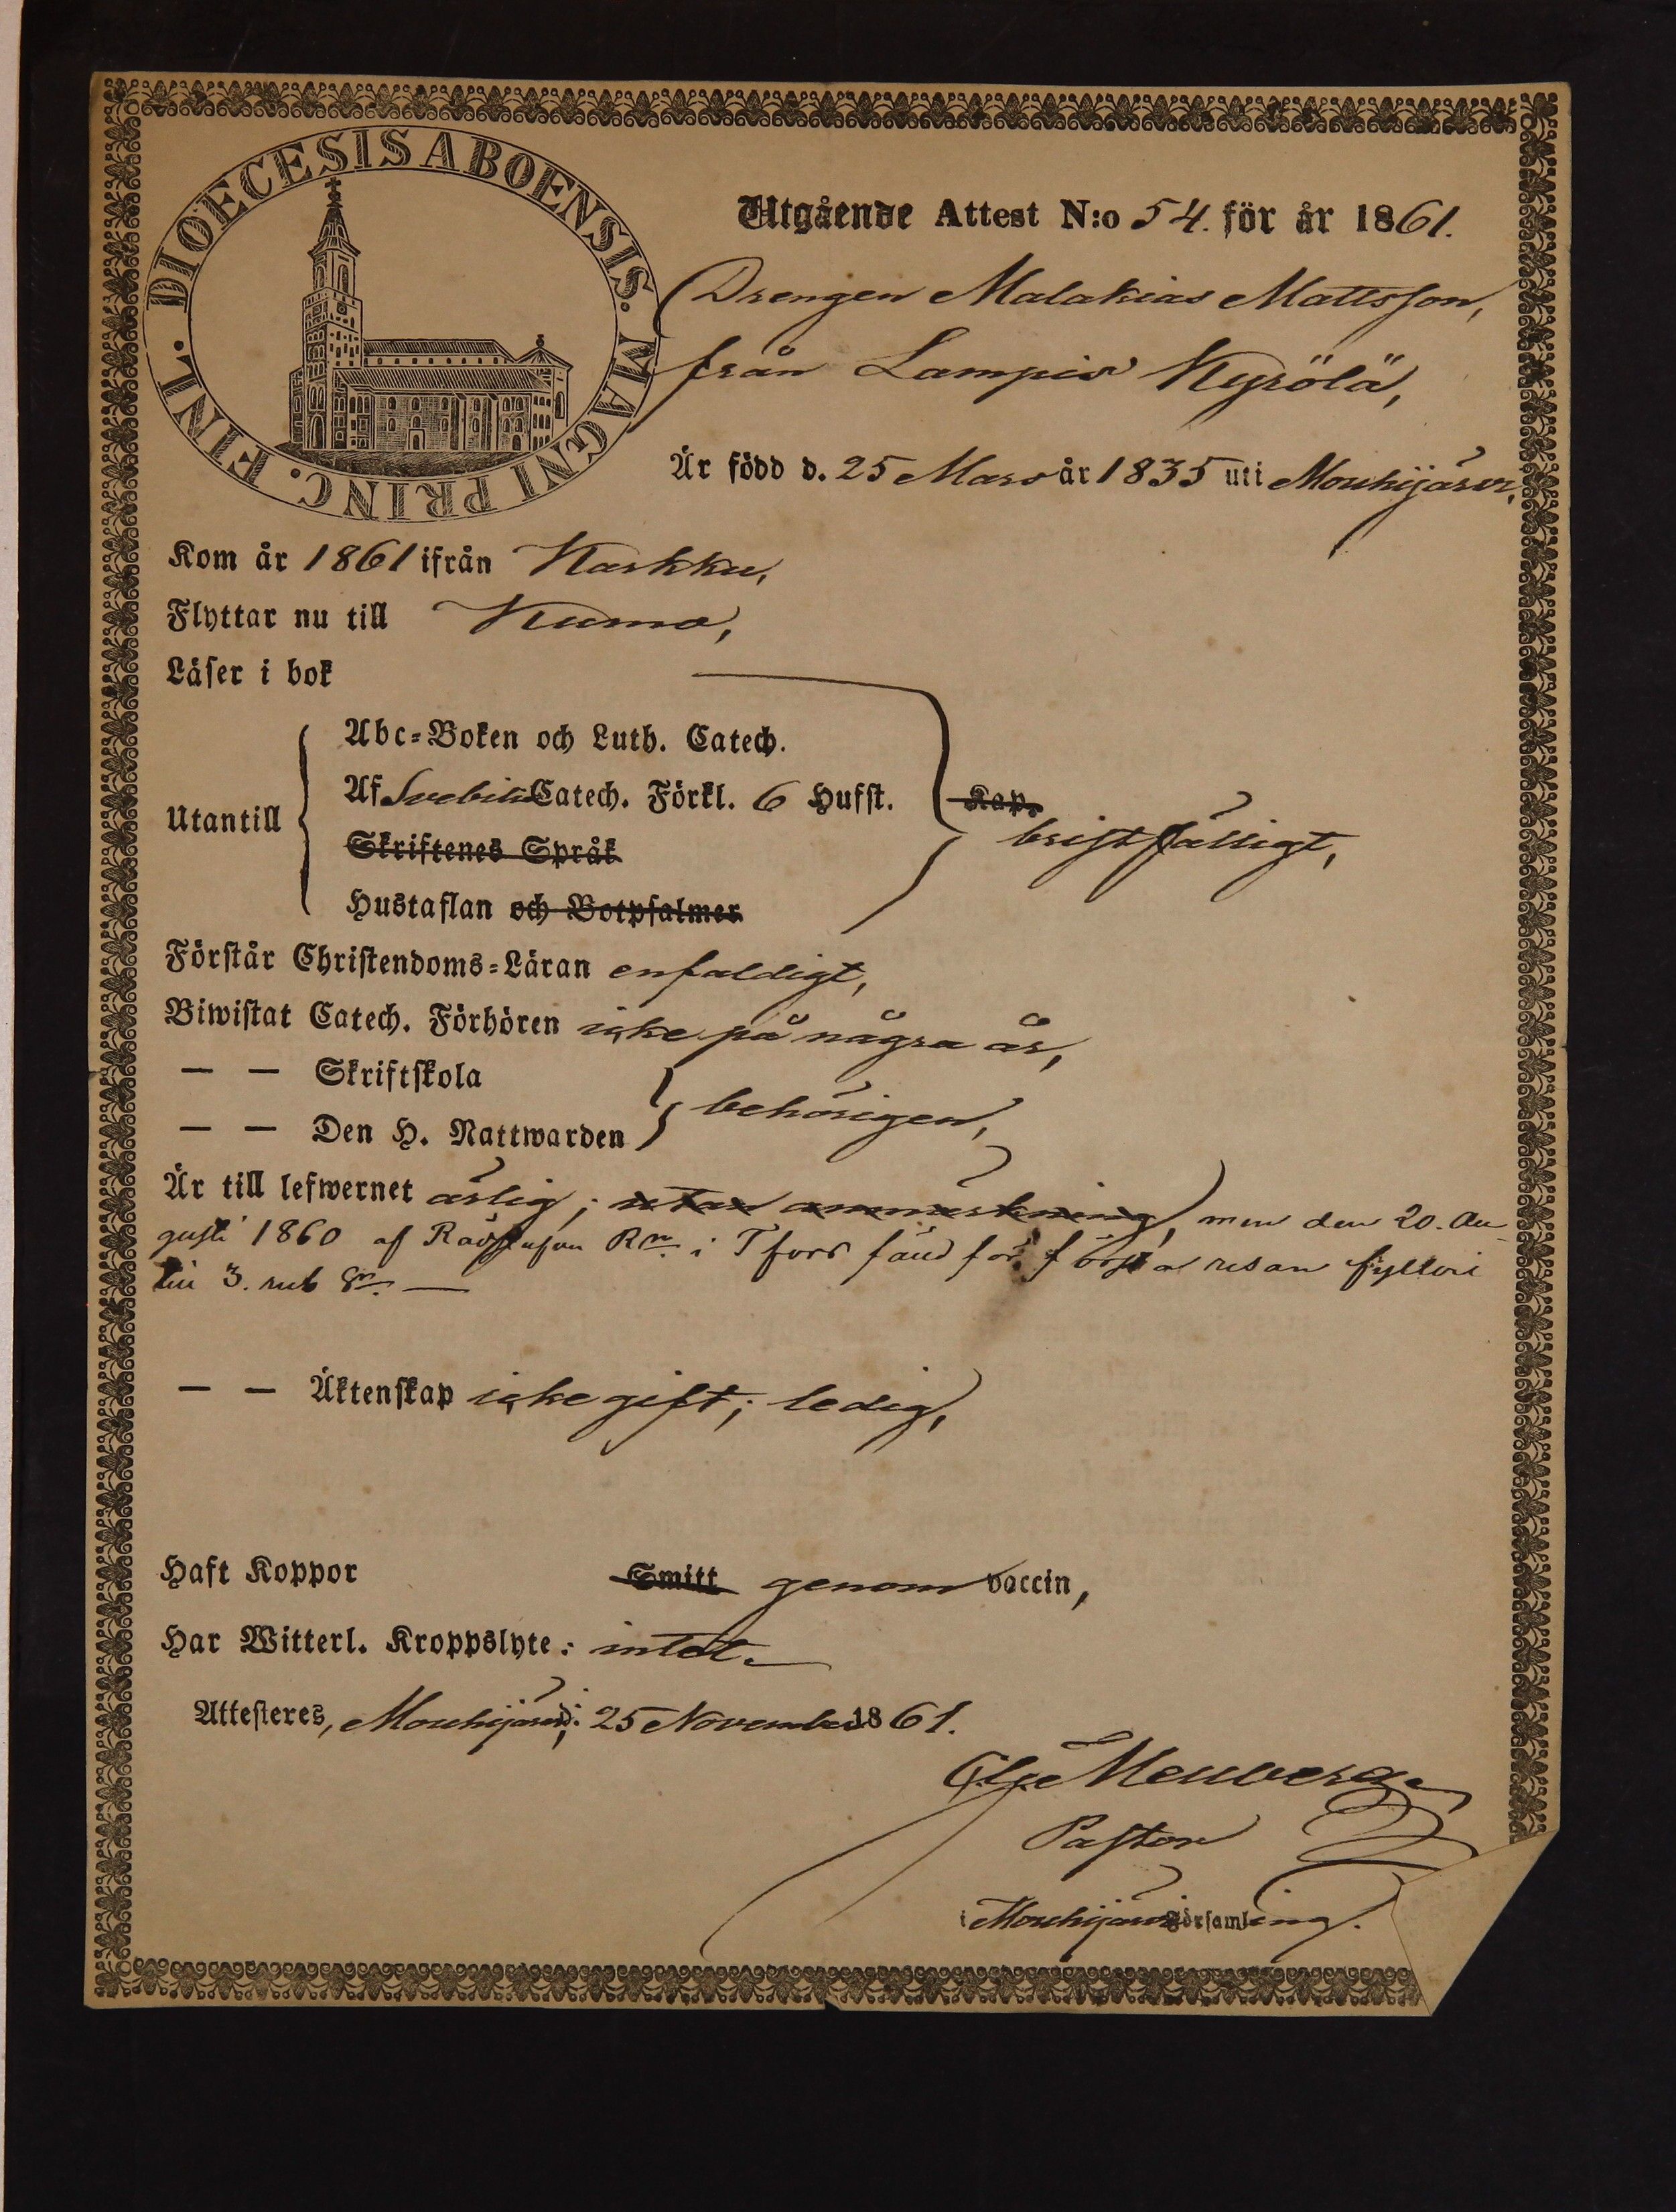 DIOECESIS ABOENSIS. MAGNI PRINC. FINL.
Utgående Attest N:o 54. för år 1861.
Drengen Malakias Mattsson,
från Lampis Kyrölä,
Är född d. 25 Mars år 1835 uti Mouhijärvi,
Kom år 1861 ifrån Karkku,
Flyttar nu till Kumo,
Läser i bok
Abc-Boken och Luth. Catech.
Utantill Af Svebilii Catech. Förkl. 6 Hufst. Kap. bristfälligt,
Skriftenes Språk
Hustaflan och Botpsalmer
Förstår Christendoms-Läran enfaldigt,
Biwistat Catech. Förhören icke på några år,
— — Skriftskola
— — Den H. Nattwarden behörigen,
Är till lefwernet ärlig; utan anmärkning, men den 20. Au-
gusti 1860 af i Tfors fäld för första resan fylleri
3. rub
— — Äktenskap icke gift; ledig,
Haft Koppor Smitt genom vaccin,
Har Witterl. Kroppslyte: intet.
Attesteres, Mouhijärvi, d: 25 November 1861.
Pastor
i Mouhijärvi Församling.